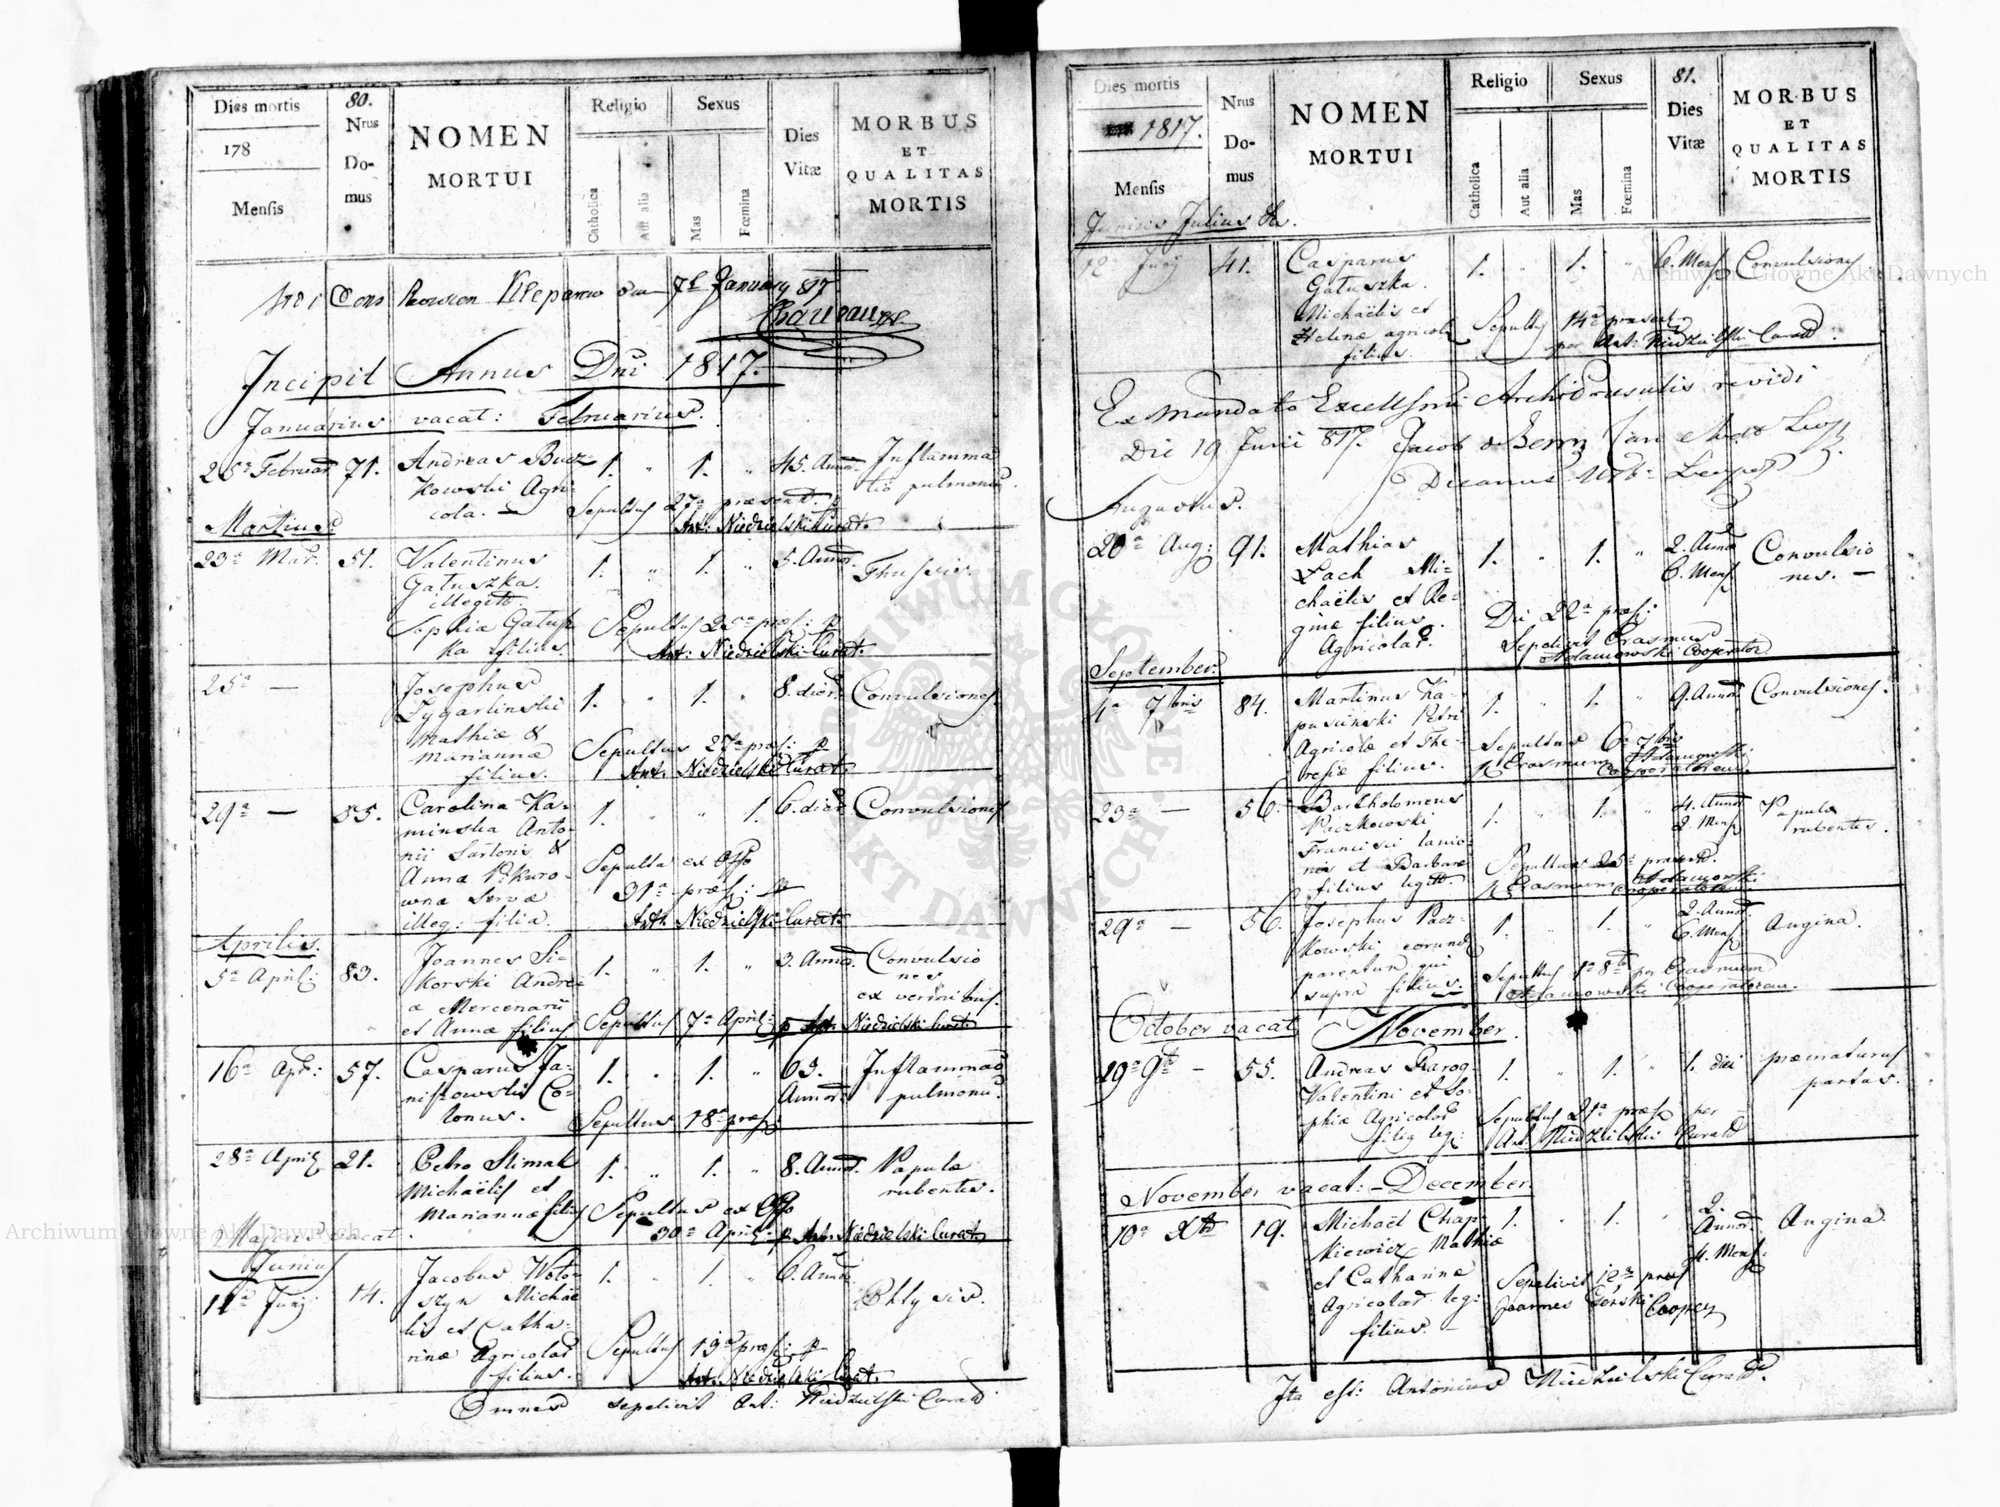 Dies mortis
178
Mensis
80.
Nrus
Do-
mus
NOMEN
MORTUI
Religio
Catholica
Aut alia
Sexus
Mas
Fœmina
Dies
Vitæ
MORBUS
ET
QUALITAS
MORTIS
Incipit Annus Dni 1817.
Januarius vacat: Februarius.
71.
Andreas Bucz-
kowski Agri-
cola.
1. " 1. "
45. Annor.
Inflamma
tio pulmonum.
Sepultus 27a præsent.
Ant: Niedzielski Curat.
Martius
23a Mar. 51.
Valentinus
Gałuszka
illegitt.
Sophia Gałusz-
ka filius.
1. " 1. "
5. Annor.
Sepultus præs: p
Ant: Niedzielski Curat.
25a —
Josephus
Mathiæ &
Mariannæ
filius.
1. 1. "
8. dier.
Convulsiones.
Sepultus 27a præs: p
Ant: Niedzielski Curat.
29a — 35.
Carolina Ka-
minska Anto-
nii Sartoris &
Anna Pikuro-
wna Serva
illeg: filia.
1. " " 1.
6. dier.
Convulsiones
Sepulta ex Offo
31a præs: p
Ant: Niedzielski Curat.
Aprilis.
5a April: 83.
Joannes Si-
korski Andre-
æ Mercenarii
et Annæ filius
1. " 1. "
3. Annor.
Convulsio
nes
ex vermibus.
Sepultus 7a April: p Ant: Niedzielski Curat.
16a Apr: 57.
Casparus Ja-
niszowski Co-
lonus.
1. " 1. "
63.
Annor.
Inflammatio
pulmonum.
Sepultus 18a præs:
28a April 21.
Petro Slimak
Michaëlis et
Mariannæ filius
1. " 1. "
8. Annor.
Papulæ
rubentes.
Sepultus ex Offo
30a April: p Ant: Niedzielski Curat.
Majus vacat.
Junius
11a Junj 14.
Jacobus Woło-
szyn Michaë
lis et Catha-
rinæ Agricolar.
filius.
1. " 1. "
6. Annor.
Phtysis.
Sepultus 13a præs: p
Ant: Niedzielski Curat.
Omnes sepelivit Ant: Niedzielski Curat.
Dies mortis
1817.
Mensis
Junius Julius
Nrus
Do-
mus
NOMEN
MORTUI
Religio
Catholica
Aut alia
Sexus
Mas
Fœmina
81.
Dies
Vitæ
MORBUS
ET
QUALITAS
MORTIS
12 Junj 41.
Casparus
Gałuszka
Michaëlis et
Helenæ agricolæ
filius.
1. " 1. "
6. Mens.
Convulsiones
Sepultus 14a præsent.
per Ant: Niedzielski Curat.
Ex Mandato Excellsmi Archipræsulis revidi
Die 19 Junii 817. Jacob
Decanus
Augustus.
20a Aug: 91.
Mathias
Lach Mi-
chaëlis et Re-
ginæ filius
Agricolar.
1. " 1. "
2. Annor.
6. Mens.
Convulsio
nes. —
Die 22a præs:
Sepelivit Erasmus
Adamowski Cooperator.
September.
4a 7bris 84.
Martinus Ka-
pusinski Petri
Agricolæ et The-
resiæ filius.
1. " 1. "
9. Annor.
Convulsiones.
Sepultus 6a 7bris
p Erasmum Adamowski
Cooperatorem.
23a — 56.
Bartholomeus
Paczkowski
Francisci lanio-
nis et Barbaræ
filius legitt.
1. " 1. "
4. Annor.
2. Mens.
Papulæ
rubentes.
Sepultus 25a præsent.
p Erasmum Adamowski
Cooperatorem
29a — 56.
Josephus Pacz-
kowski eorund.
parentum qui
supra filius.
1. " 1. "
2. Annor.
6. Mens.
Angina.
Sepultus 1a 8bris per Erasmum
Adamowski Cooperatorem.
October vacat November.
55.
Andreas Rarog
Valentini et So-
phiæ Agricolar.
filius leg:
1. " 1. "
1. diei
præmaturus
partus.
Sepultus 21a præs. per
Ant. Niedzielski Curat.
November vacat: – December.
10a Xbr. 19.
Michaël Chap-
kiewicz Mathiæ
et Catharinæ
Agricolar. leg:
filius. —
1. " 1. "
2.
Annor.
4. Mens.
Angina.
Sepelivit 12a præs
Joannes Gerski Cooper.
Ita est: Antonius Niedzielski Curat.
Archiwum Główne Akt Dawnych
Archiwum Główne Akt Dawnych
ARCHIWUM GŁÓWNE AKT DAWNYCH